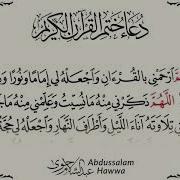 دعاء ختم القرآن الكريم
أَرْحَمْنِي بِالْقُرْءَانِ وَاجْعَلْهُ لِي إِمَامًا وَنُورًا وَهُ
اللَّهُمَّ ذَكِّرْنِي مِنْهُ مَا نَسِيتُ وَعَلِّمْنِي مِنْهُ مَا جَ
نِي تِلَاوَتَهُ آنَاءَ اللَّيْلِ وَأَطْرَافَ النَّهَارِ وَاجْعَلْهُ لِي حُجَّةً
Abdussalam
Hawwa